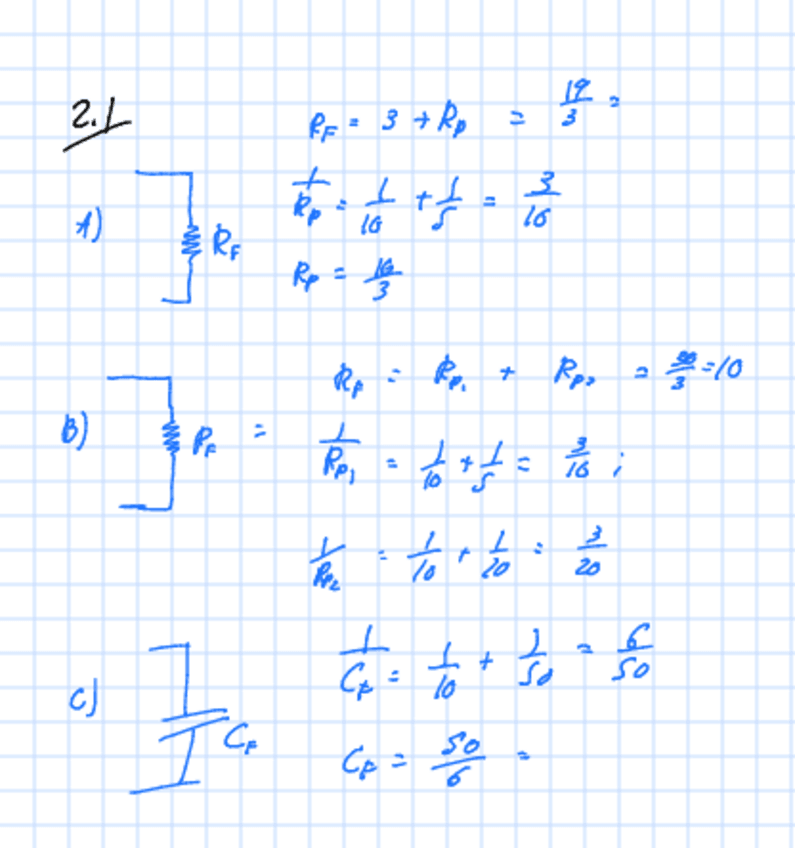 2.1
R_F = 3 + R_p = 19/3 =
A) R_F
1/R_p = 1/10 + 1/5 = 3/10
R_p = 10/3
R_F = R_p1 + R_p2 = 30/3 = 10
B) R_F =
1/R_p1 = 1/10 + 1/5 = 3/10 ;
1/R_p2 = 1/10 + 1/20 = 3/20
C) C_F
1/C_F = 1/10 + 1/50 = 6/50
C_F = 50/6 =